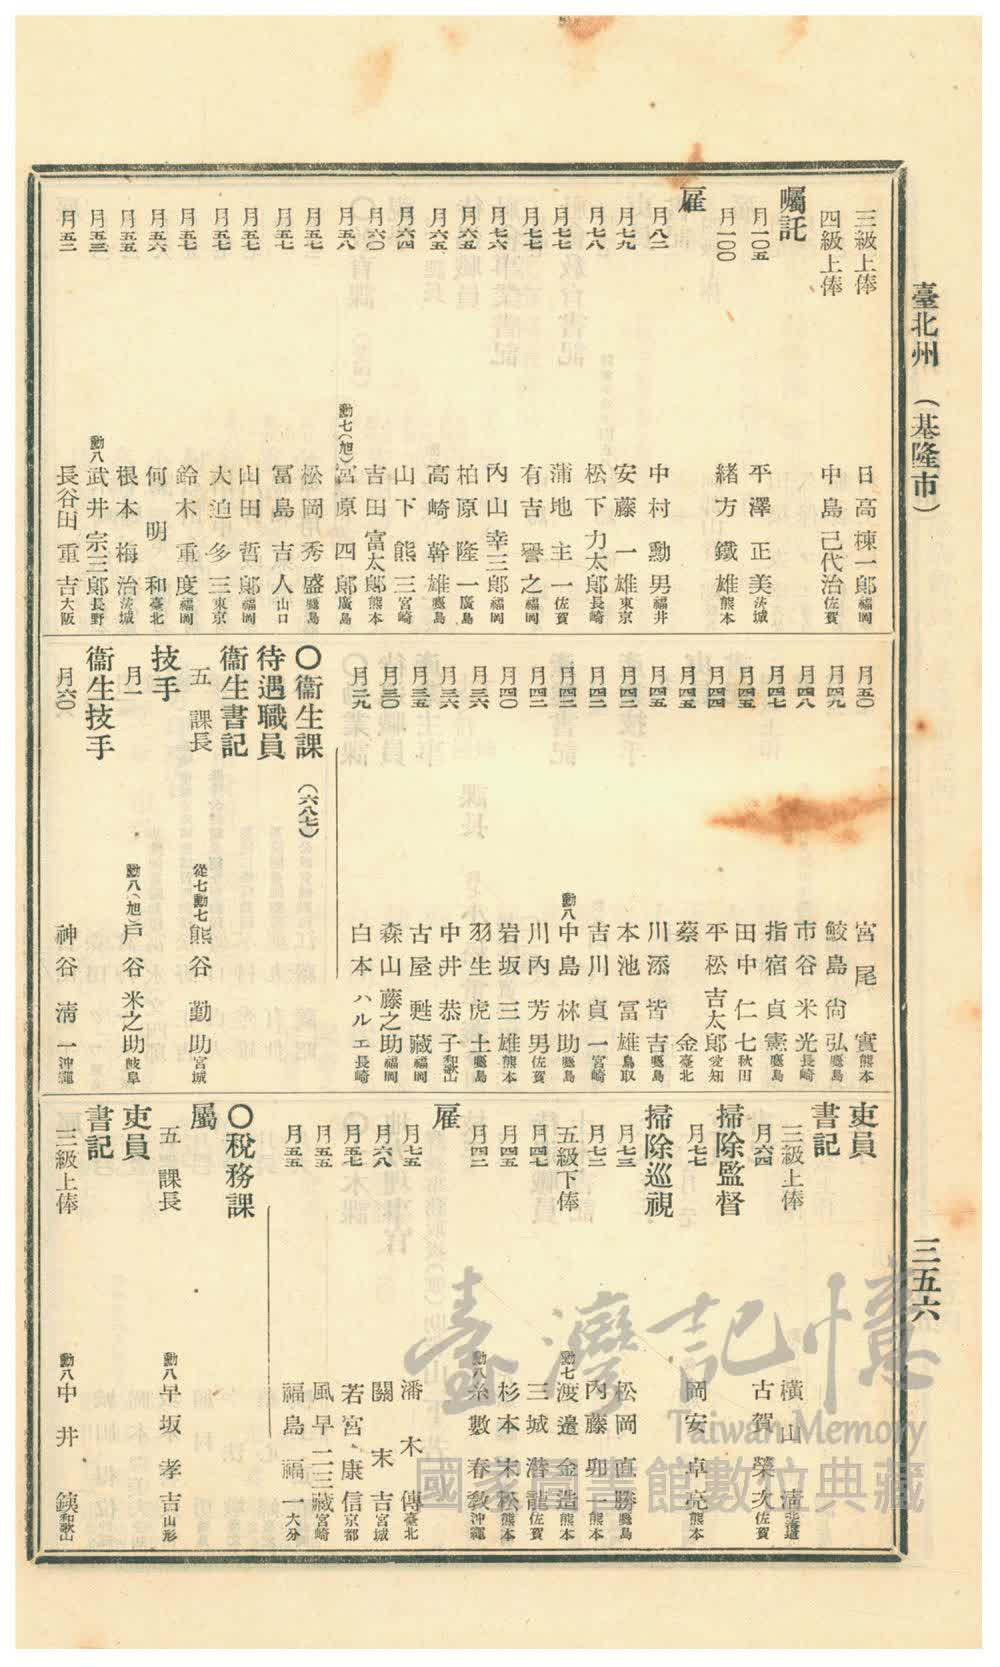 臺北州 (基隆市)
三五六
三級上俸 日高棟一郎 福岡
四級上俸 中島己代治 佐賀
囑託
月一〇五 平澤正美 茨城
月一〇〇 緒方鐵雄 熊本
雇
月八二 中村勳男 福井
月七九 安藤一雄 東京
月七八 松下力太郎 長崎
月七七 蒲地主一 佐賀
月七七 有吉譽之 福岡
月七六 內山幸三郎 福岡
月六五 柏原隆一 廣島
月六五 高崎幹雄 鹿島
月六四 山下熊三 宮崎
月六〇 吉田富太郎 熊本
月五八 勳七(旭) 宮原四郎 廣島
月五七 松岡秀盛 鹿島
月五七 冨島吉人 山口
月五七 山田哲郎 福岡
月五七 大迫多三 東京
月五七 鈴木重度 福岡
月五六 何明和 臺北
月五五 根本梅治 茨城
月五三 勳八 武井宗三郎 長野
月五二 長谷田重吉 大阪
月五〇 宮尾實 熊本
月四九 鮫島尙弘 鹿島
月四八 市谷米光 長崎
月四七 指宿貞憲 鹿島
月四五 田中仁七 秋田
月四四 平松吉太郎 愛知
月四五 蔡金 臺北
月四五 川添皆吉 鹿島
月四四 本池冨雄 鳥取
月四二 吉川貞一 宮崎
月四四 勳八 中島林助 鹿島
月四二 川內芳男 佐賀
月四〇 岩坂三雄 熊本
月三六 羽生虎土 鹿島
月三六 中井恭子 和歌山
月三五 古屋甦藏 福岡
月三〇 森山藤之助 福岡
月二九 白本ハルエ 長崎
〇衞生課 (六八七)
待遇職員
衞生書記
五 課長 從七勳七 熊谷勤助 宮城
技手
月一 勳八(旭) 戶谷米之助 岐阜
衞生技手
月六〇 神谷淸一 沖繩
吏員
書記
三級上俸 橫山淸 北海道
月六四 古賀榮次 佐賀
掃除監督
月七七 岡安卓亮 熊本
掃除巡視
月七三 松岡直勝 鹿島
月七二 內藤卯一 熊本
五級下俸 勳七 渡邉金造 熊本
月四七 三城潜龍 佐賀
月四五 杉本末松 熊本
月四二 勳八 糸數春敎 沖繩
雇
月七五 潘木傳 臺北
月六八 關末吉 宮城
月五七 若宮康信 京都
月五五 風早二三藏 宮崎
月五五 福島福一 大分
〇稅務課
屬
五 課長 勳八 早坂孝吉 山形
吏員
書記
三級上俸 勳八 中井鋑 和歌山
臺灣記憶
Taiwan Memory
國家圖書館數位典藏